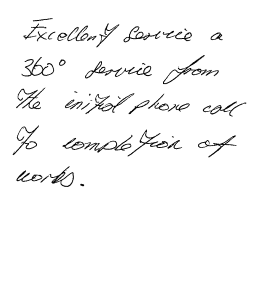 Excellent service a
360° service from
the initial phone call
to completion of
works.